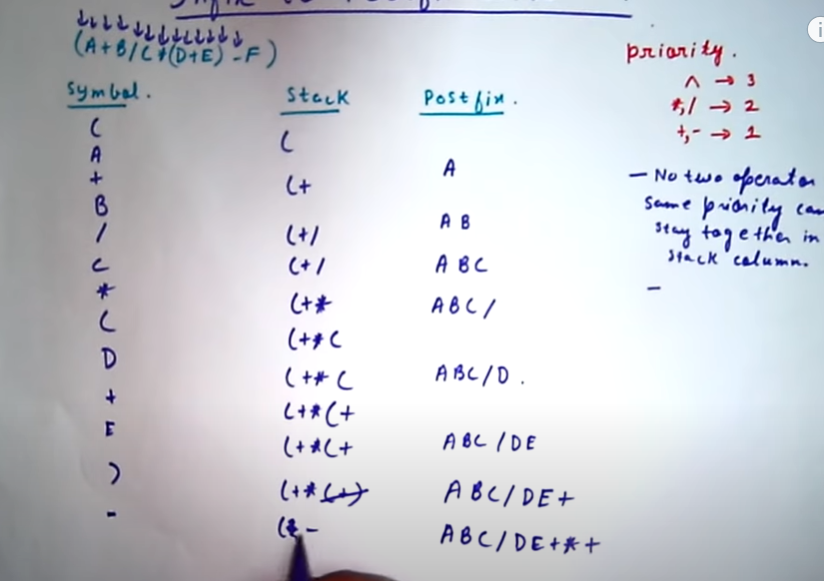 (A+B/C*(D+E)-F)
Symbol. Stack Postfix.
( (
A A
+ (+
B A B
/ (+/
C (+/ A B C
* (+* A B C /
( (+*(
D (+*( A B C / D .
+ (+*(+
E (+*(+ A B C / D E
) (+*(+) A B C / D E +
- (- A B C / D E + * +
priority.
^ → 3
*,/ → 2
+,- → 1
- No two operator
same priority can
stay together in
stack column.
-
i